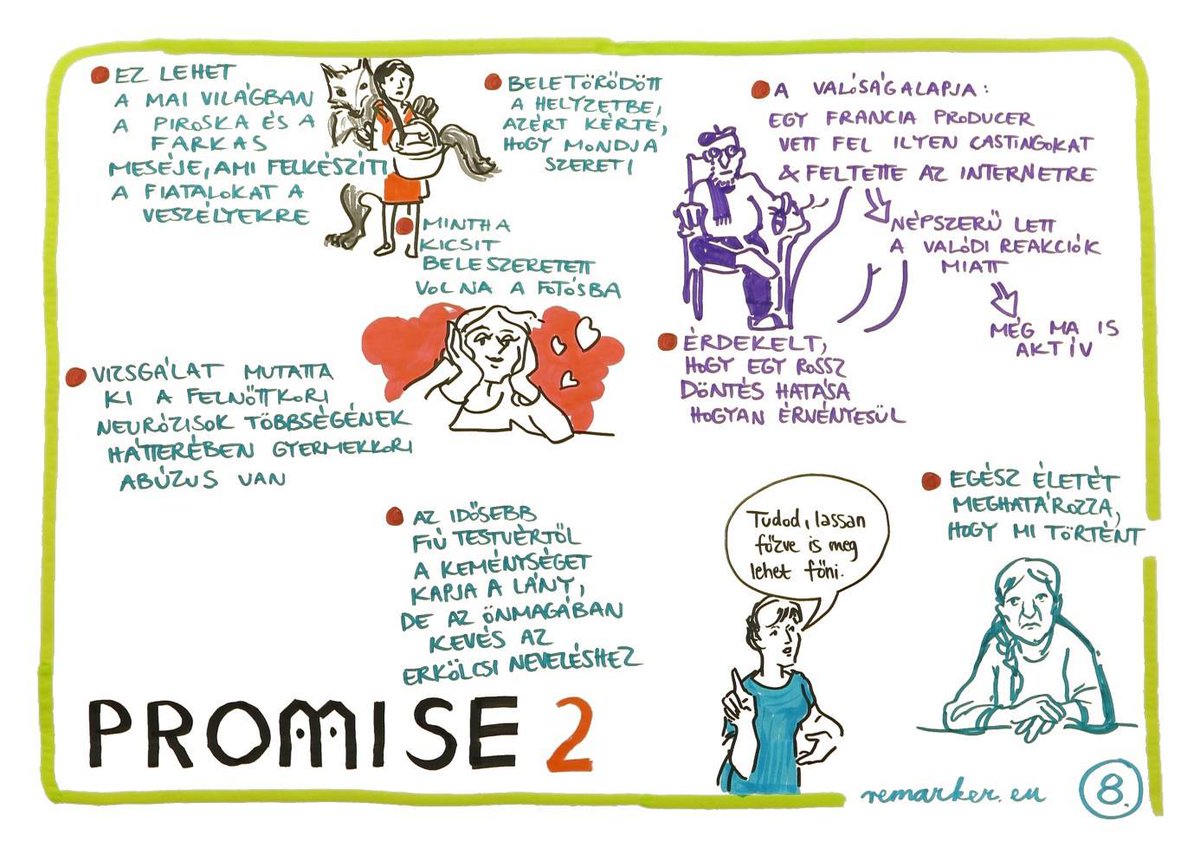 EZ LEHET
A MAI VILÁGBAN
A PIROSKA ÉS A
FARKAS
MESÉJE, AMI FELKÉSZÍTI
A FIATALOKAT A
VESZÉLYEKRE
BELETÖRŐDÖTT
A HELYZETBE,
AZÉRT KÉRTE,
HOGY MONDJA
SZERETI
A VALÓSÁGALAPJA:
EGY FRANCIA PRODUCER
VETT FEL ILYEN CASTINGOKAT
& FELTETTE AZ INTERNETRE
NÉPSZERŰ LETT
A VALÓDI REAKCIÓK
MIATT
MÉG MA IS
AKTÍV
MINTHA
KICSIT
BELESZERETETT
VOLNA A FOTÓSBA
ÉRDEKELT,
HOGY EGY ROSSZ
DÖNTÉS HATÁSA
HOGYAN ÉRVÉNYESÜL
VIZSGÁLAT MUTATTA
KI A FELNŐTTKORI
NEURÓZISOK TÖBBSÉGÉNEK
HÁTTERÉBEN GYERMEKKORI
ABÚZUS VAN
AZ IDŐSEBB
FIÚ TESTVÉRTŐL
A KEMÉNYSÉGET
KAPJA A LÁNY,
DE AZ ÖNMAGÁBAN
KEVÉS AZ
ERKÖLCSI NEVELÉSHEZ
Tudod, lassan
főzve is meg
lehet főni.
EGÉSZ ÉLETÉT
MEGHATÁROZZA,
HOGY MI TÖRTÉNT
PROMISE 2
remarker.eu
8.